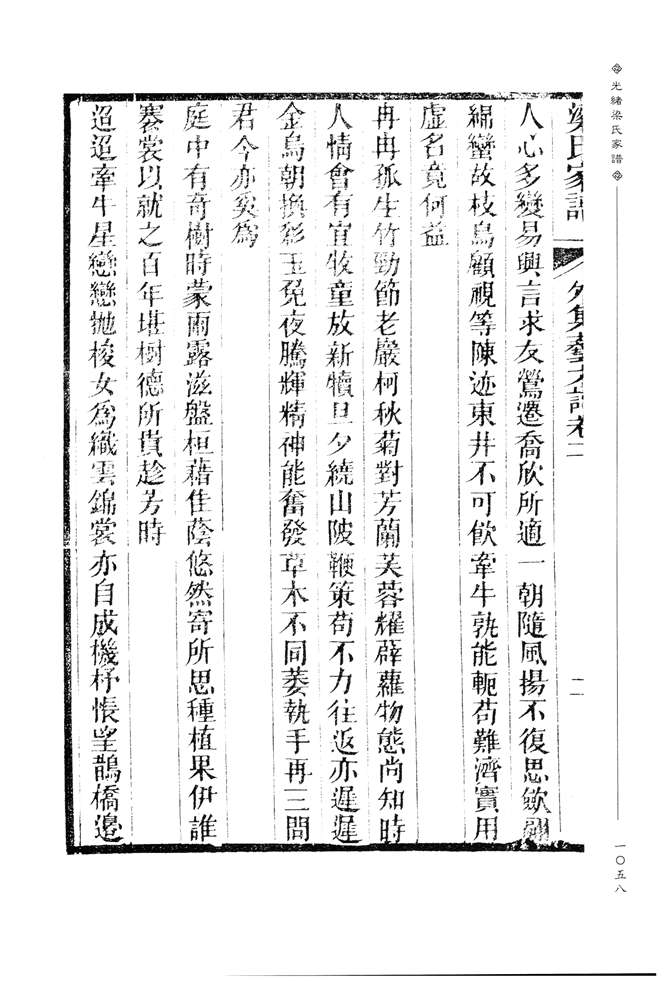 光緒梁氏家譜
一〇五八
梁氏家譜 外集藝文譜卷二 二
人心多變易興言求友鶯遷喬欣所適一朝隨風揚不復思斂翮
綿蠻故枝鳥顧視等陳迹東井不可飲牽牛孰能軛苟難濟實用
虛名竟何益
冉冉孤生竹勁節老巖柯秋菊對芳蘭芙蓉耀薜蘿物態尚知時
人情會有宜牧童放新犢旦夕繞山陂鞭策苟不力往返亦遲遲
金烏朝換彩玉兔夜騰輝精神能奮發草木不同萎執手再三問
君今亦奚為
庭中有奇樹時蒙雨露滋盤桓藉佳蔭悠然寄所思種植果伊誰
褰裳以就之百年堪樹德所貴趁芳時
迢迢牽牛星戀戀拋梭女為織雲錦裳亦自成機杼悵望鵲橋邊